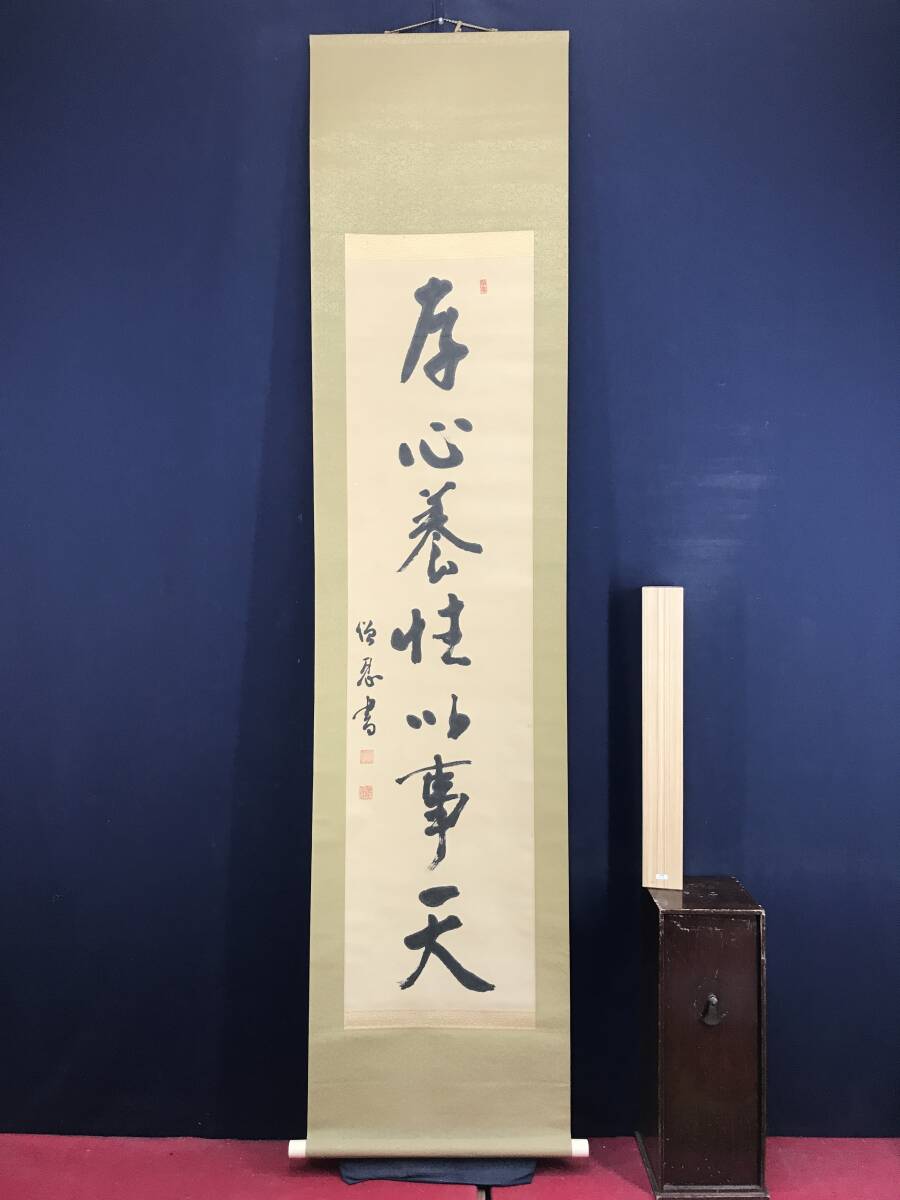 存心養性以事天
僧忍書